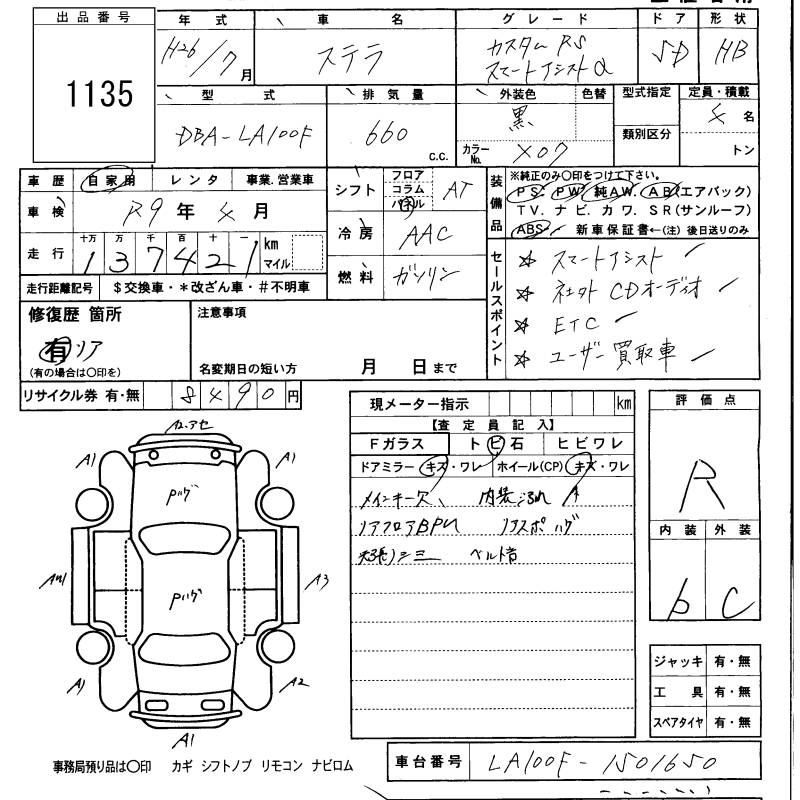 出品番号 年式 車名 グレード ドア 形状
1135 H26/7月 ステラ カスタム RS スマートアシスト α 5D HB
型式 排気量 外装色 色替 型式指定 定員・積載
DBA-LA100F 660 C.C. 黒 類別区分 4名
カラーNo. X07 トン
車歴 自家用 レンタ 事業.営業車 シフト フロア コラム パネル AT
装備品 ※純正のみ○印をつけて下さい。
PS. PW. 純AW. AB(エアバック)
TV. ナビ. カワ. SR(サンルーフ)
ABS. 新車保証書←(注) 後日送りのみ
車検 R9年 4月 冷房 AAC
走行 十万 万 千 百 十 一 km マイル
137421
燃料 ガソリン
走行距離記号 $交換車・*改ざん車・#不明車
セールスポイント
☆ スマートアシスト
☆ 社外 CDオーディオ
☆ ETC
☆ ユーザー買取車
修復歴 箇所 注意事項
有 リア
(有の場合は○印を) 名変期日の短い方 月 日まで
リサイクル券 有・無 8490円
現メーター指示 km
【査定員記入】
Fガラス トビ石 ヒビワレ
ドアミラー キズ・ワレ ホイール(CP) キズ・ワレ
メインキー欠 内装汚れ ↑
リアフロアBPベ
天張シミ ベルト音
評価点
R
内装 外装
b C
A1 A1
Pハゲ
A3
Pハゲ
A1 A2
A1
ジャッキ 有・無
工具 有・無
スペアタイヤ 有・無
事務局預り品は○印 カギ シフトノブ リモコン ナビロム
車台番号 LA100F-1501650